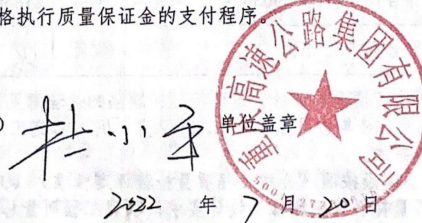 格执行质量保证金的支付程序。
杜小军 单位盖章
重庆高速公路集团有限公司
2022 年 7 月 20 日